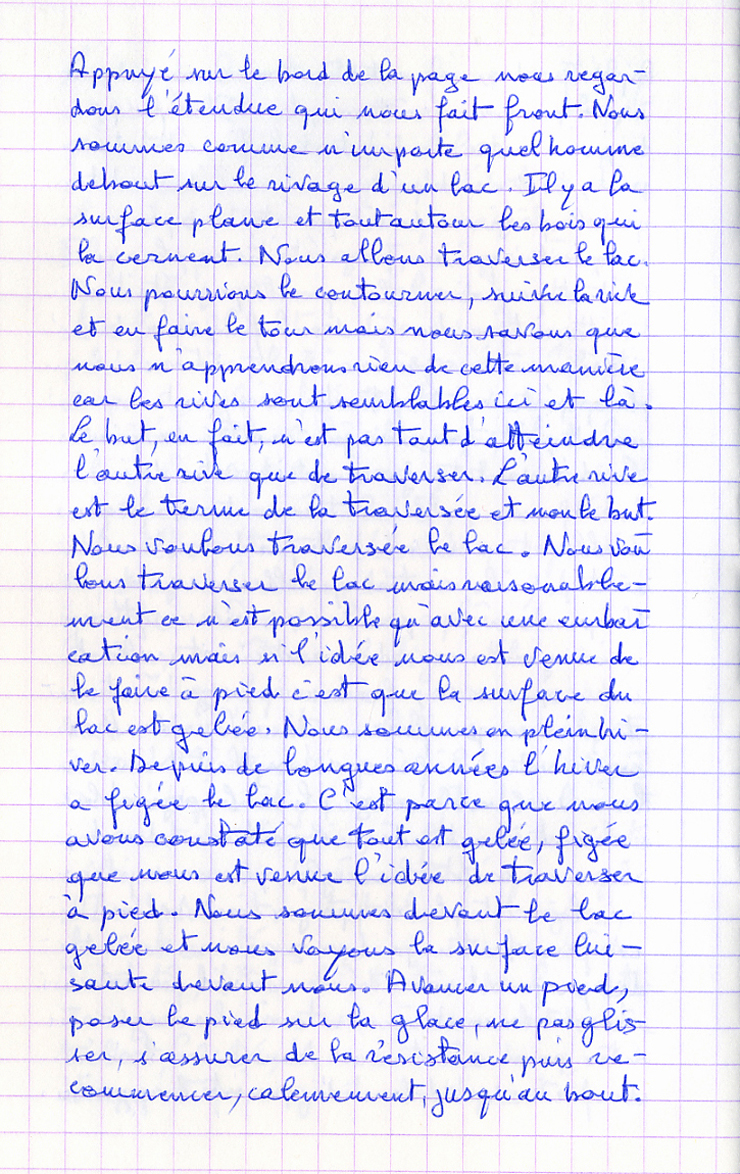 Appuyé sur le bord de la page nous regar-
dons l'étendue qui nous fait front. Nous
sommes comme n'importe quel homme
debout sur le rivage d'un lac. Il y a la
surface plane et tout autour les bois qui
la cernent. Nous allons traverser le lac.
Nous pourrions le contourner, suivre la rive
et en faire le tour mais nous savons que
nous n'apprendrons rien de cette manière
car les rives sont semblables ici et là.
Le but, en fait, n'est pas tant d'atteindre
l'autre rive que de traverser. L'autre rive
est le terme de la traversée et non le but.
Nous voulons traversée le lac. Nous vou
lons traverser le lac mais raisonnable-
ment ce n'est possible qu'avec une embar
cation mais si l'idée nous est venue de
le faire à pied c'est que la surface du
lac est gelée. Nous sommes en plein hi-
ver. Depuis de longues années l'hiver
a figée le lac. C'est parce que nous
avons constaté que tout est gelée, figée
que nous est venue l'idée de traverser
à pied. Nous sommes devant le lac
gelée et nous voyons la surface lui-
sante devant nous. Avancer un pied,
poser le pied sur la glace, ne pas glis-
ser, s'assurer de la résistance puis re-
commencer, calmement, jusqu'au bout.